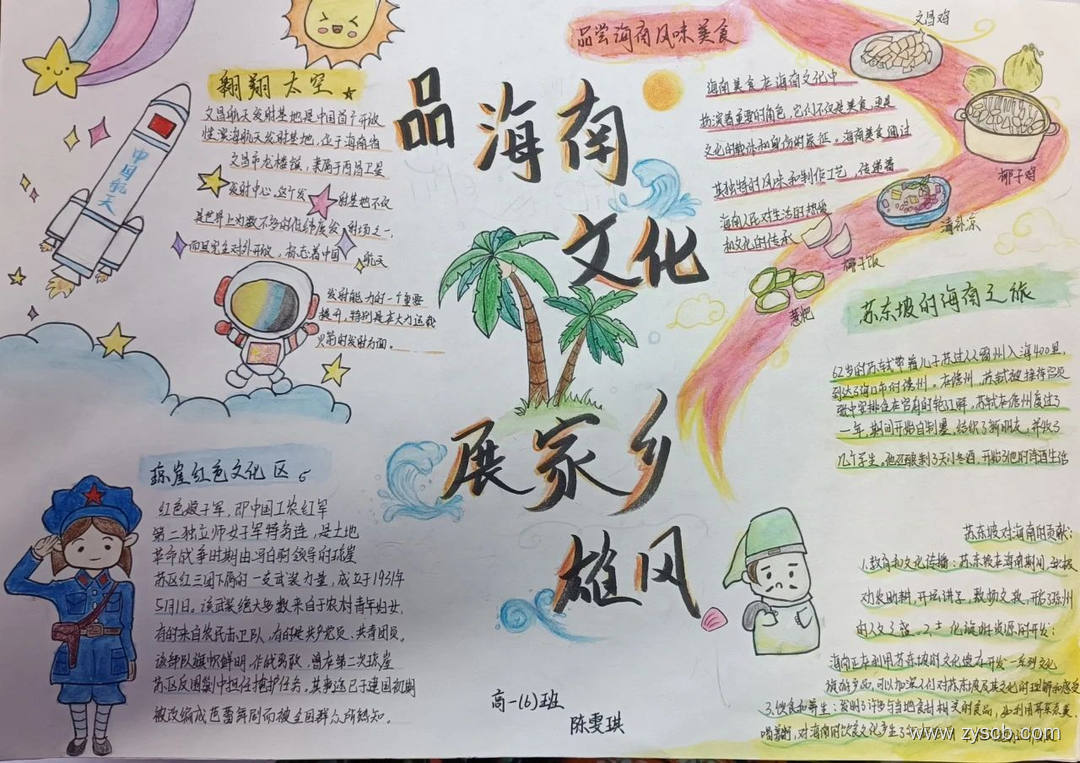 品海南
文化
展家乡
雄风
翱翔太空
文昌航天发射基地是中国首个开放
性滨海航天发射基地,位于海南省
文昌市龙楼镇,隶属于西昌卫星
发射中心,这个发射基地不仅
是世界上为数不多的低纬度发射场之一,
而且完全对外开放,标志着中国航天
发射能力的一个重要
提升,特别是在大力运载
火箭的发射方面。
中国航天
品尝海南风味美食
海南美食在海南文化中
扮演着重要的角色,它们不仅是美食,更是
文化的载体和身份的象征。海南美食通过
其独特的风味和制作工艺 传递着
海南人民对生活的热爱
和文化的传承
文昌鸡
椰子鸡
清补凉
椰子饭
薏粑
苏东坡的海南之旅
62岁的苏轼带着儿子苏过从雷州入海400里,
到达了海口市的儋州。在儋州,苏轼被
一年,期间开始自制墨,结识了新朋友,并收了
几个学生,他还酿制了天门冬酒,开始了他的诗酒生活
苏东坡对海南的贡献:
1.教育和文化传播:苏东坡在海南期间,
劝农助耕,开坛讲学,敷扬文教,开了琼州
的人文之盛。2.文化旅游资源的开发:
海南正在利用苏东坡的文化遗存开发一系列文化
旅游产品,可以加深人们对苏东坡及其文化的理解和感受
3.饮食和养生:发明了许多与当地食材相关的食品,
对海南的饮食文化产生了
琼崖红色文化区
红色娘子军,即中国工农红军
第二独立师女子军特务连,是土地
革命战争时期由冯白驹领导的琼崖
苏区红三团下属的一支武装力量,成立于1931年
5月1日。该武装绝大多数来自于农村青年妇女,
有的来自农民赤卫队,有的是共产党员、共青团员。
该部队旗帜鲜明,作战勇敢,曾在第二次琼崖
苏区反围剿中担任掩护任务。其事迹已于建国初期
被改编成芭蕾舞剧而被全国群众所熟知。
高一(6)班
陈雯琪
www.zyscb.com